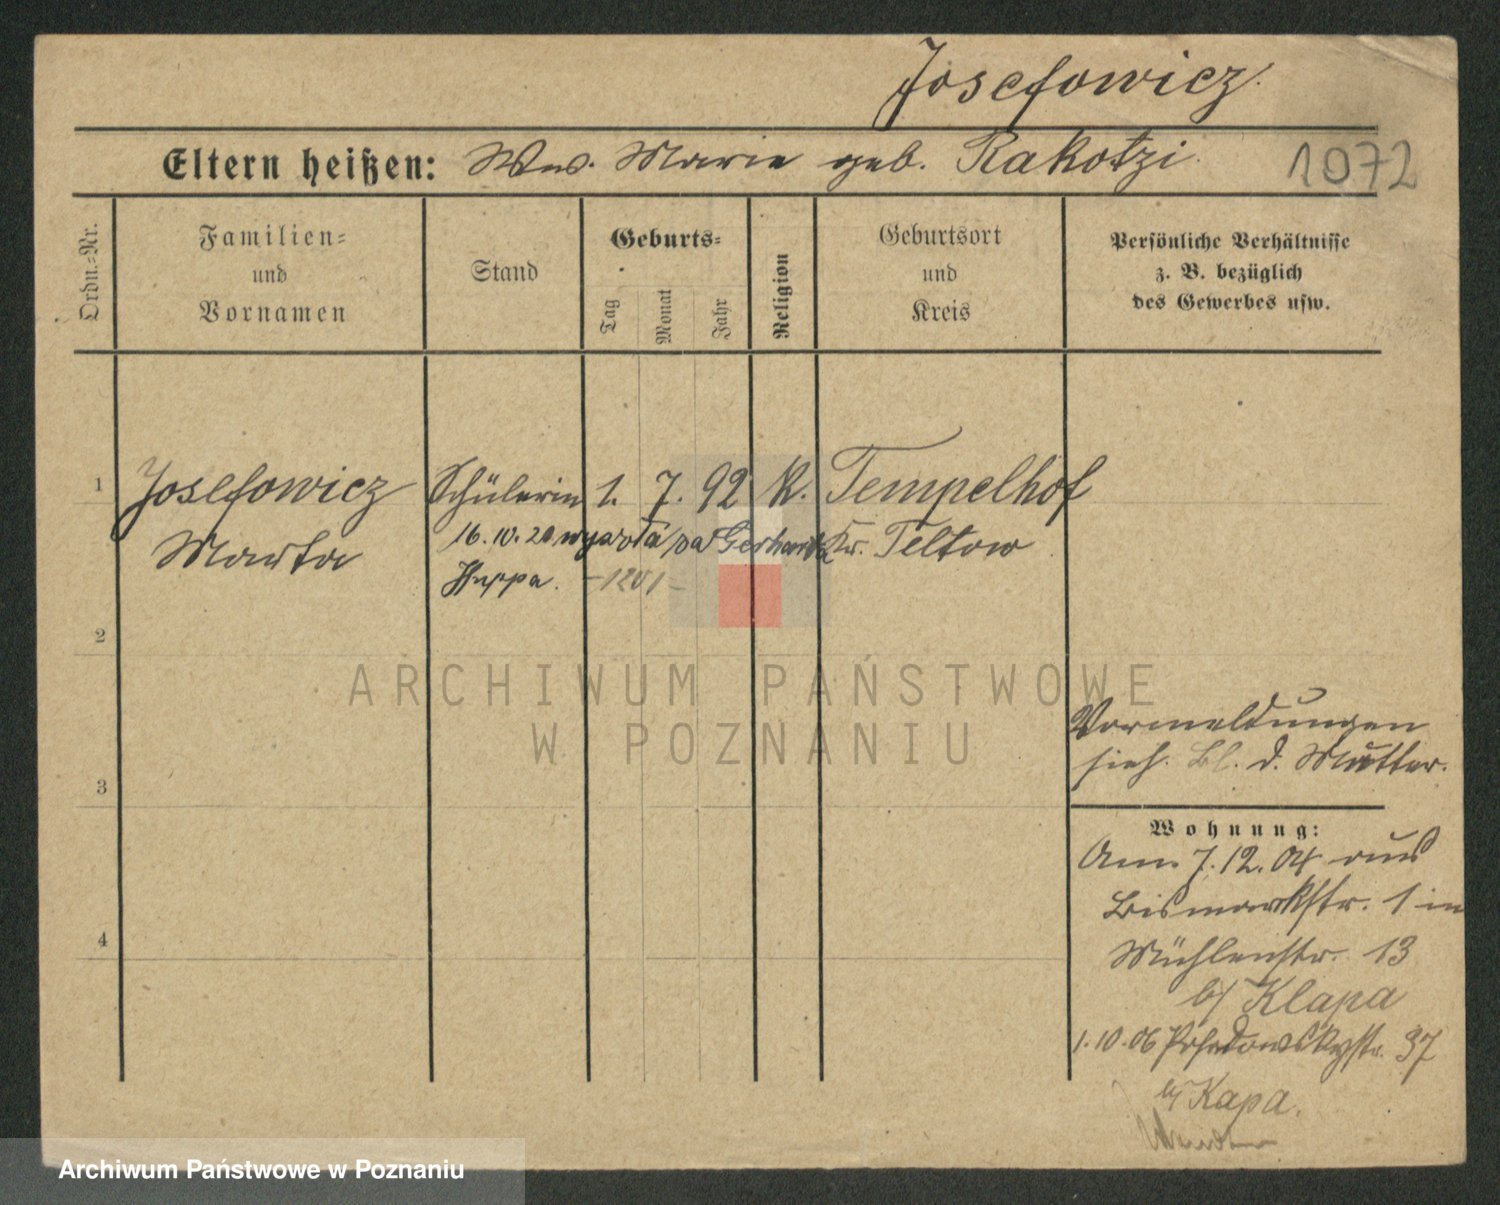 Josefowicz
Eltern heißen: Ww. Marie geb. Rakotzi.
1072
Ordn.-Nr.
Familien-
und
Vornamen
Stand
Geburts-
Tag
Monat
Jahr
Religion
Geburtsort
und
Kreis
Persönliche Verhältnisse
z. B. bezüglich
des Gewerbes usw.
1 Josefowicz Schülerin 1. 7. 92 k. Tempelhof
Marta
16.10.20 wyszła za Gerharda
Kr. Teltow
Huppa. -1201-
2
3
4
Vormeldungen
sieh. Bl. d. Mutter.
Wohnung:
Am 7.12.04 aus
Bismarckstr. 1 in
Mühlenstr. 13
b/ Klapa
1.10.06 Posadowskystr. 37
b/ Kapa.
ARCHIWUM PAŃSTWOWE
W POZNANIU
Archiwum Państwowe w Poznaniu